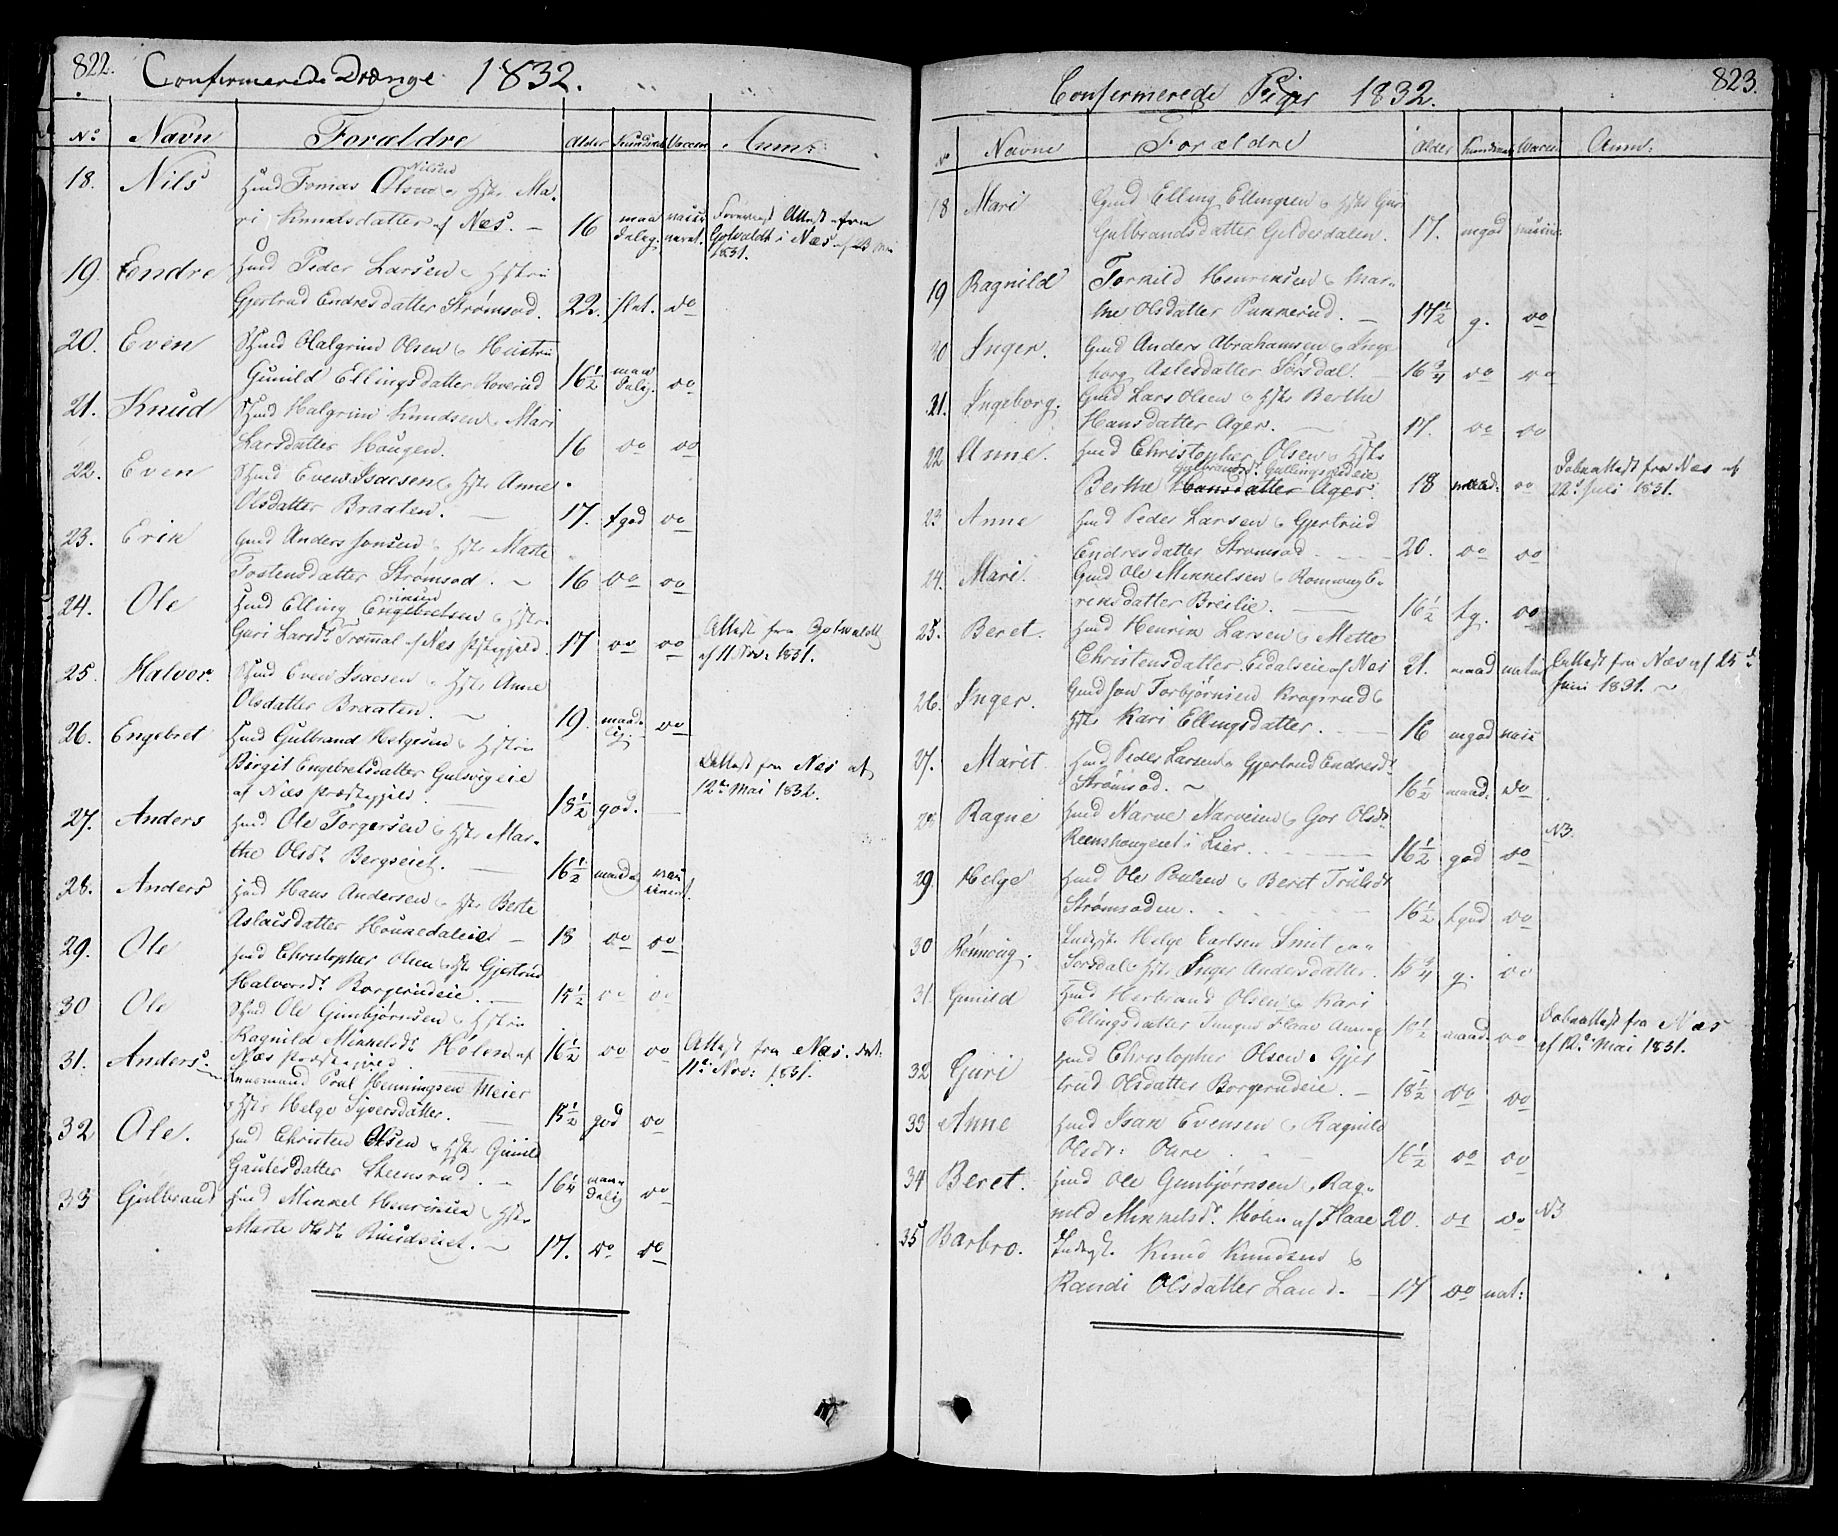 822.
Confirmerede Drænge 1832.
No Navn Forældre Alder Kundskab Vaccin Anm:
18. Nils Huusd Tomas Olsen Hstr Ma-
ri Knudsdatter af Næs. 16 maadelig. Attest fra
Gotvaldt i Næs af 23 Mai
1831.
19. Endre Huusd Peder Larsen & Hstru
Gjertrud Endresdatter Strømsod. 22. slet. do
20. Even Huusd Halgrim Olsen & Hustru
Gunild Ellingsdatter Roverud 16½ maadelig. do
21. Knud Huusd Halgrim Knudsen & Mari
Larsdatter Haugen. 16 do do
22. Even Huusd Even Isacsen & Hstr Anne
Olsdatter Braaten. 17. tgod do
23. Erik Gmd Anders Jonsen & Hstr Marte
Tostensdatter Strømsod. 16 do do
24. Ole Huusd Elling Engebretsen & Hstr
Guri Larsdt Trommal af Næs Præstegjeld. 17 do do Attest fra Gotwaldt
af 11 Nov: 1831.
25. Halvor. Huusd Even Isacsen & Hstr Anne
Olsdatter Braaten. 19. maadelig. do
26. Engebret Huusd Gulbrand Helgesen & Hstru
Birgit Engebretsdatter Gulsvigeie
af Næs Præstegjeld. 18½ god. Attest fra Næs af
12te Mai 1832.
27. Anders Huusd Ole Torgersen & Hstr Mar-
the Olsdt Bergseiet. 16½ maad
28. Anders Huusd Hans Andersen & Hstr Berte
Aslaksdatter 18 do do
29. Ole Huusd Christopher Olsen & Hstr Gjertrud
Halvorsdt Borgerudeie. 15½ do do
30 Ole Huusd Ole Gunbjørnsen & Hstru
Ragnild Mikkelsdt Hølen af
Næs Præstegjeld. 16½ do do Attest fra Næs. dat:
11te Nov: 1831.
31. Anders. Poul Henningsen Meier
& Hstr Helge Syversdatter. 15½ god do
32 Ole. Huusd Christen Olsen & Hstr Gunild
Gautesdatter Steensrud. 16¼ maadelig do
33 Gulbrand Huusd Mikkel Henriksen & Hstr
Marte Olsdt Ruudseiet. 17. do do
823.
Confermerede Piger 1832.
No Navne Forældre Alder Kundskab Vaccin Anm:
18 Mari Gmd Elling Ellingsen & Hstr Guri
Gulbrandsdatter Gildesdalen. 17. mgod
19 Ragnild Torkild Henriksen & Mar-
the Olsdatter Punnerud. 17½ g. do
20 Inger. Gmd Anders Abrahamsen & Inge
borg Aslesdatter Sørsdal. 16¾ do do
21. Ingeborg. Gmd Lars Olsen & Hstr Berthe
Hansdatter Ager. 17. do do
22 Anne. Huusd Christopher Olsen & Hstr
Gulbrandsdt Gullingsrudeie
Berthe Hansdatter Ager. 18 maad: do Dobeattest fra Næs af
22de Juli 1831.
23 Anne Huusd Peder Larsen & Gjertrud
Endresdatter Strømsod. 20. do do
24. Mari. Gmd Ole Mikkelsen & Romoug E-
riksdatter Breslie. 16½ tg. do
25. Beret. Huusd Henrik Larsen & Mette
Christensdatter Eidalseie af Næs 21. maad Attest fra Næs af 25de
Juni 1831.
26. Inger. Gmd Jon Torbjørnsen Kragsrud &
Hstr Kari Ellingsdatter. 16 mgod
27. Marit Huusd Peder Larsen & Gjertrud Endresdt
Strømsod. 16½ maad. do
28 Ragne Huusd Narve Narvesen & Gor Olsdt
Reenskougeiet i Lier. 16½ god do NB.
29. Helge Huusd Ole Poulsen & Beret Trulsdt
Strømsoden. 16½ tgod do
30 Rønnoug. Inderst Helge Carlsen Smit
Sorsdal & Hstr Inger Andersdatter. 15¾ g. do
31. Gunild Huusd Herbrand Olsen & Kari
Ellingsdatter Flaae Annex 16½ maad. do Dobeattest fra Næs
af 12te Mai 1831.
32 Guri Huusd Christopher Olsen & Gjer
trud Olsdatter Borgerudeie. 18½ do do
33 Anne Huusd Isak Evensen & Ragnild
Olsdt: 16½ do do
34 Beret. Huusd Ole Gunbjørnsen & Rag-
nild Mikkelsdt Holen af Flaae 20. do do NB
35 Barbro. Inderst Knud Knudsen &
Randi Olsdatter Land. 17 do nat: